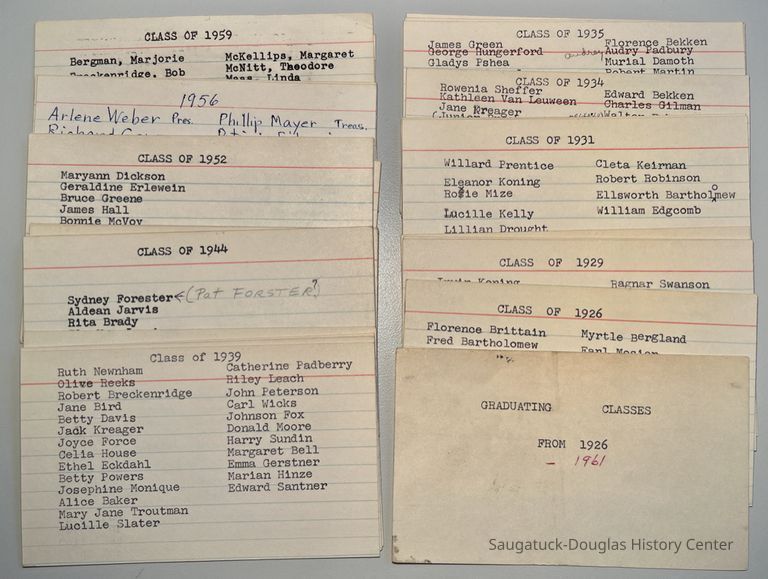 CLASS OF 1959
Bergman, Marjorie McKellips, Margaret
Breckenridge, Bob McNitt, Theodore
Linda
1956
Arlene Weber Pres. Phillip Mayer Treas.
Richard
CLASS OF 1952
Maryann Dickson
Geraldine Erlewein
Bruce Greene
James Hall
Bonnie McVoy
CLASS OF 1944
Sydney Forester ← (Pat FORSTER?)
Aldean Jarvis
Rita Brady
Class of 1939
Ruth Newnham Catherine Padberry
Olive Reeks Riley Leach
Robert Breckenridge John Peterson
Jane Bird Carl Wicks
Betty Davis Johnson Fox
Jadk Kreager Donald Moore
Joyce Force Harry Sundin
Celia House Margaret Bell
Ethel Eckdahl Emma Gerstner
Betty Powers Marian Hinze
Josephine Monique Edward Santner
Alice Baker
Mary Jane Troutman
Lucille Slater
CLASS OF 1935
James Green Florence Bekken
George Hungerford Audry Padbury
Gladys Pshea Murial Damoth
Robert Martin
CLASS OF 1934
Rowenia Sheffer Edward Bekken
Kathleen Van Leuween Charles Gilman
Jane Kreager Walter
CLASS OF 1931
Willard Prentice Cleta Keirnan
Eleanor Koning Robert Robinson
Rosie Mize Ellsworth Bartholmew
Lucille Kelly William Edgcomb
Lillian Drought
CLASS OF 1929
Irwin Koning Ragnar Swanson
CLASS OF 1926
Florence Brittain Myrtle Bergland
Fred Bartholomew Earl
GRADUATING CLASSES
FROM 1926
- 1961
Saugatuck-Douglas History Center